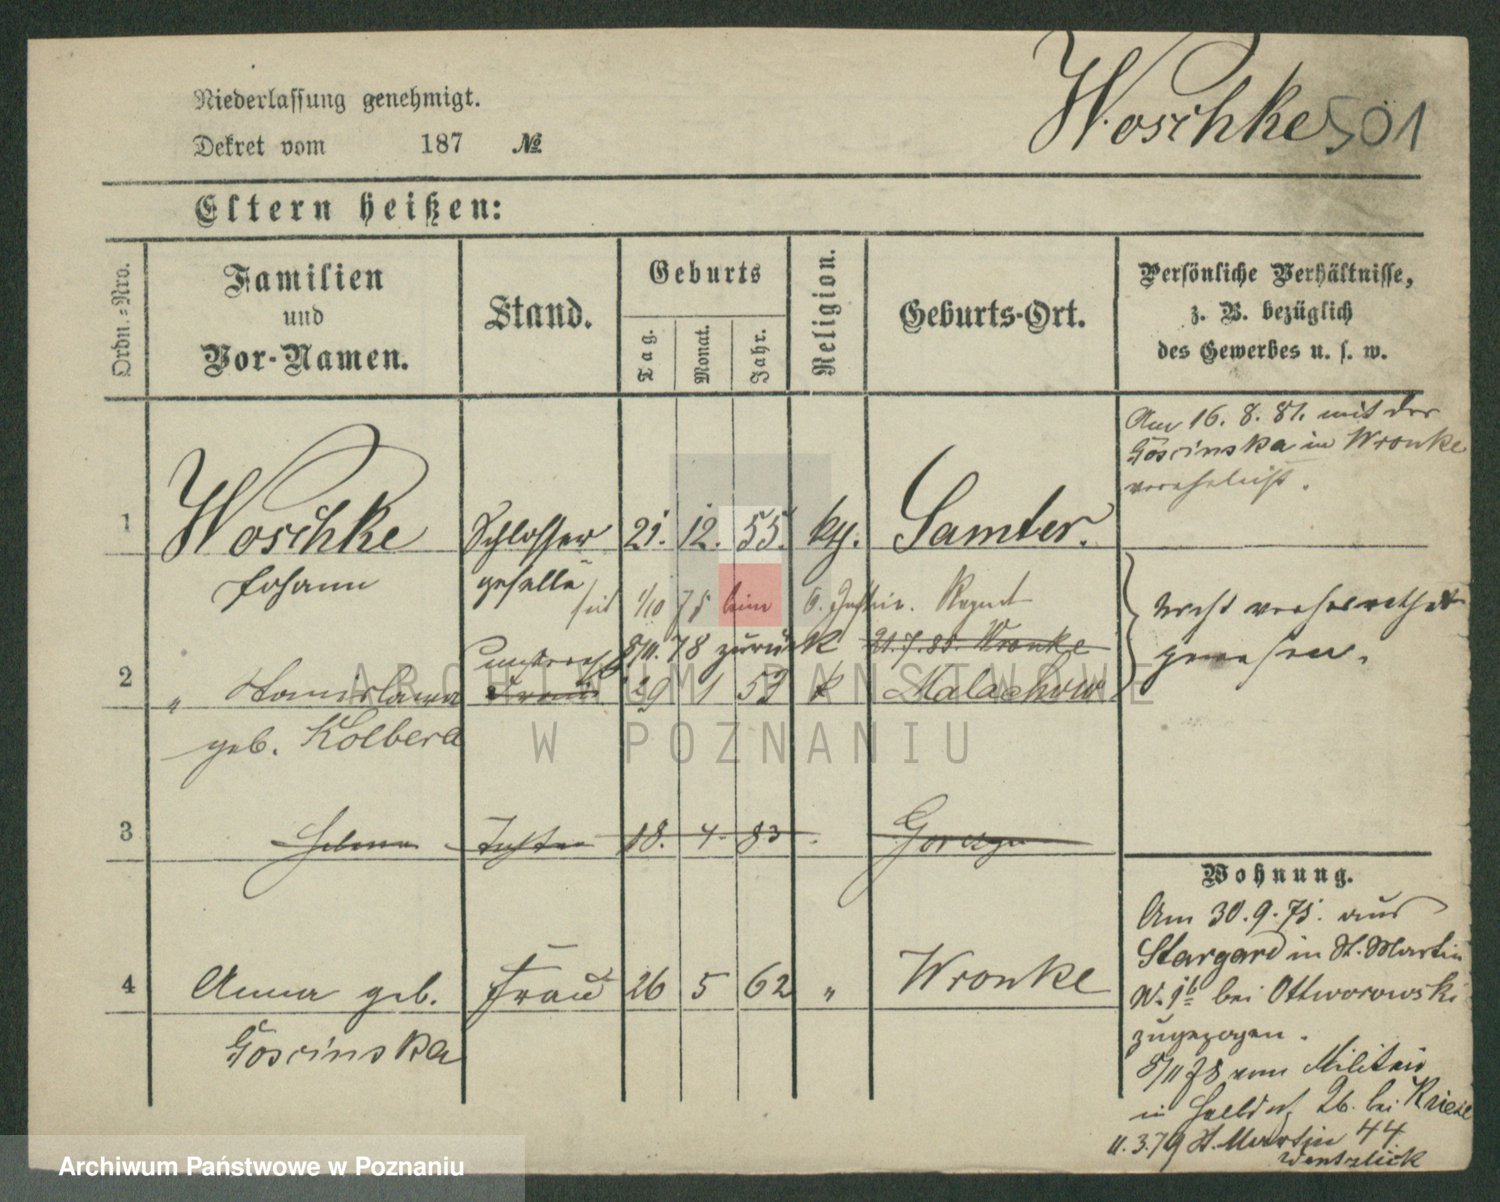 Niederlassung genehmigt.
Dekret vom 187 №
Woschke 501
Eltern heißen:
Ordn.-Nro.
Familien
und
Vor-Namen.
Stand.
Geburts
Tag.
Monat.
Jahr.
Religion.
Geburts-Ort.
Persönliche Verhältnisse,
z. B. bezüglich
des Gewerbes u. s. w.
Am 16. 8. 81. mit der
Goscinska in Wronke
verehelicht.
1 Woschke Schlosser 21. 12. 55. kth. Samter.
Johann geselle
seit 1/10 75 beim 6.
8/11. 78 zurück 21. 7. 80. Wronke
nicht verheirathet
gewesen.
2 " Stanislawa Frau 29 1 53 k Malachowo
geb. Kolbera
3 Helena Tochter 18. 4. 83 Gorczyn
4 Anna geb. Frau 26 5 62 " Wronke
Goscinska
Wohnung.
Am 30. 9. 75. aus
Stargard in St. Martin
bei Ottworowski
zugezogen.
8/11 78 vom Militair
in Halbdorf 26. bei Kriese
11. 3. 79 St. Martin 44
ARCHIWUM PAŃSTWOWE
W POZNANIU
Archiwum Państwowe w Poznaniu